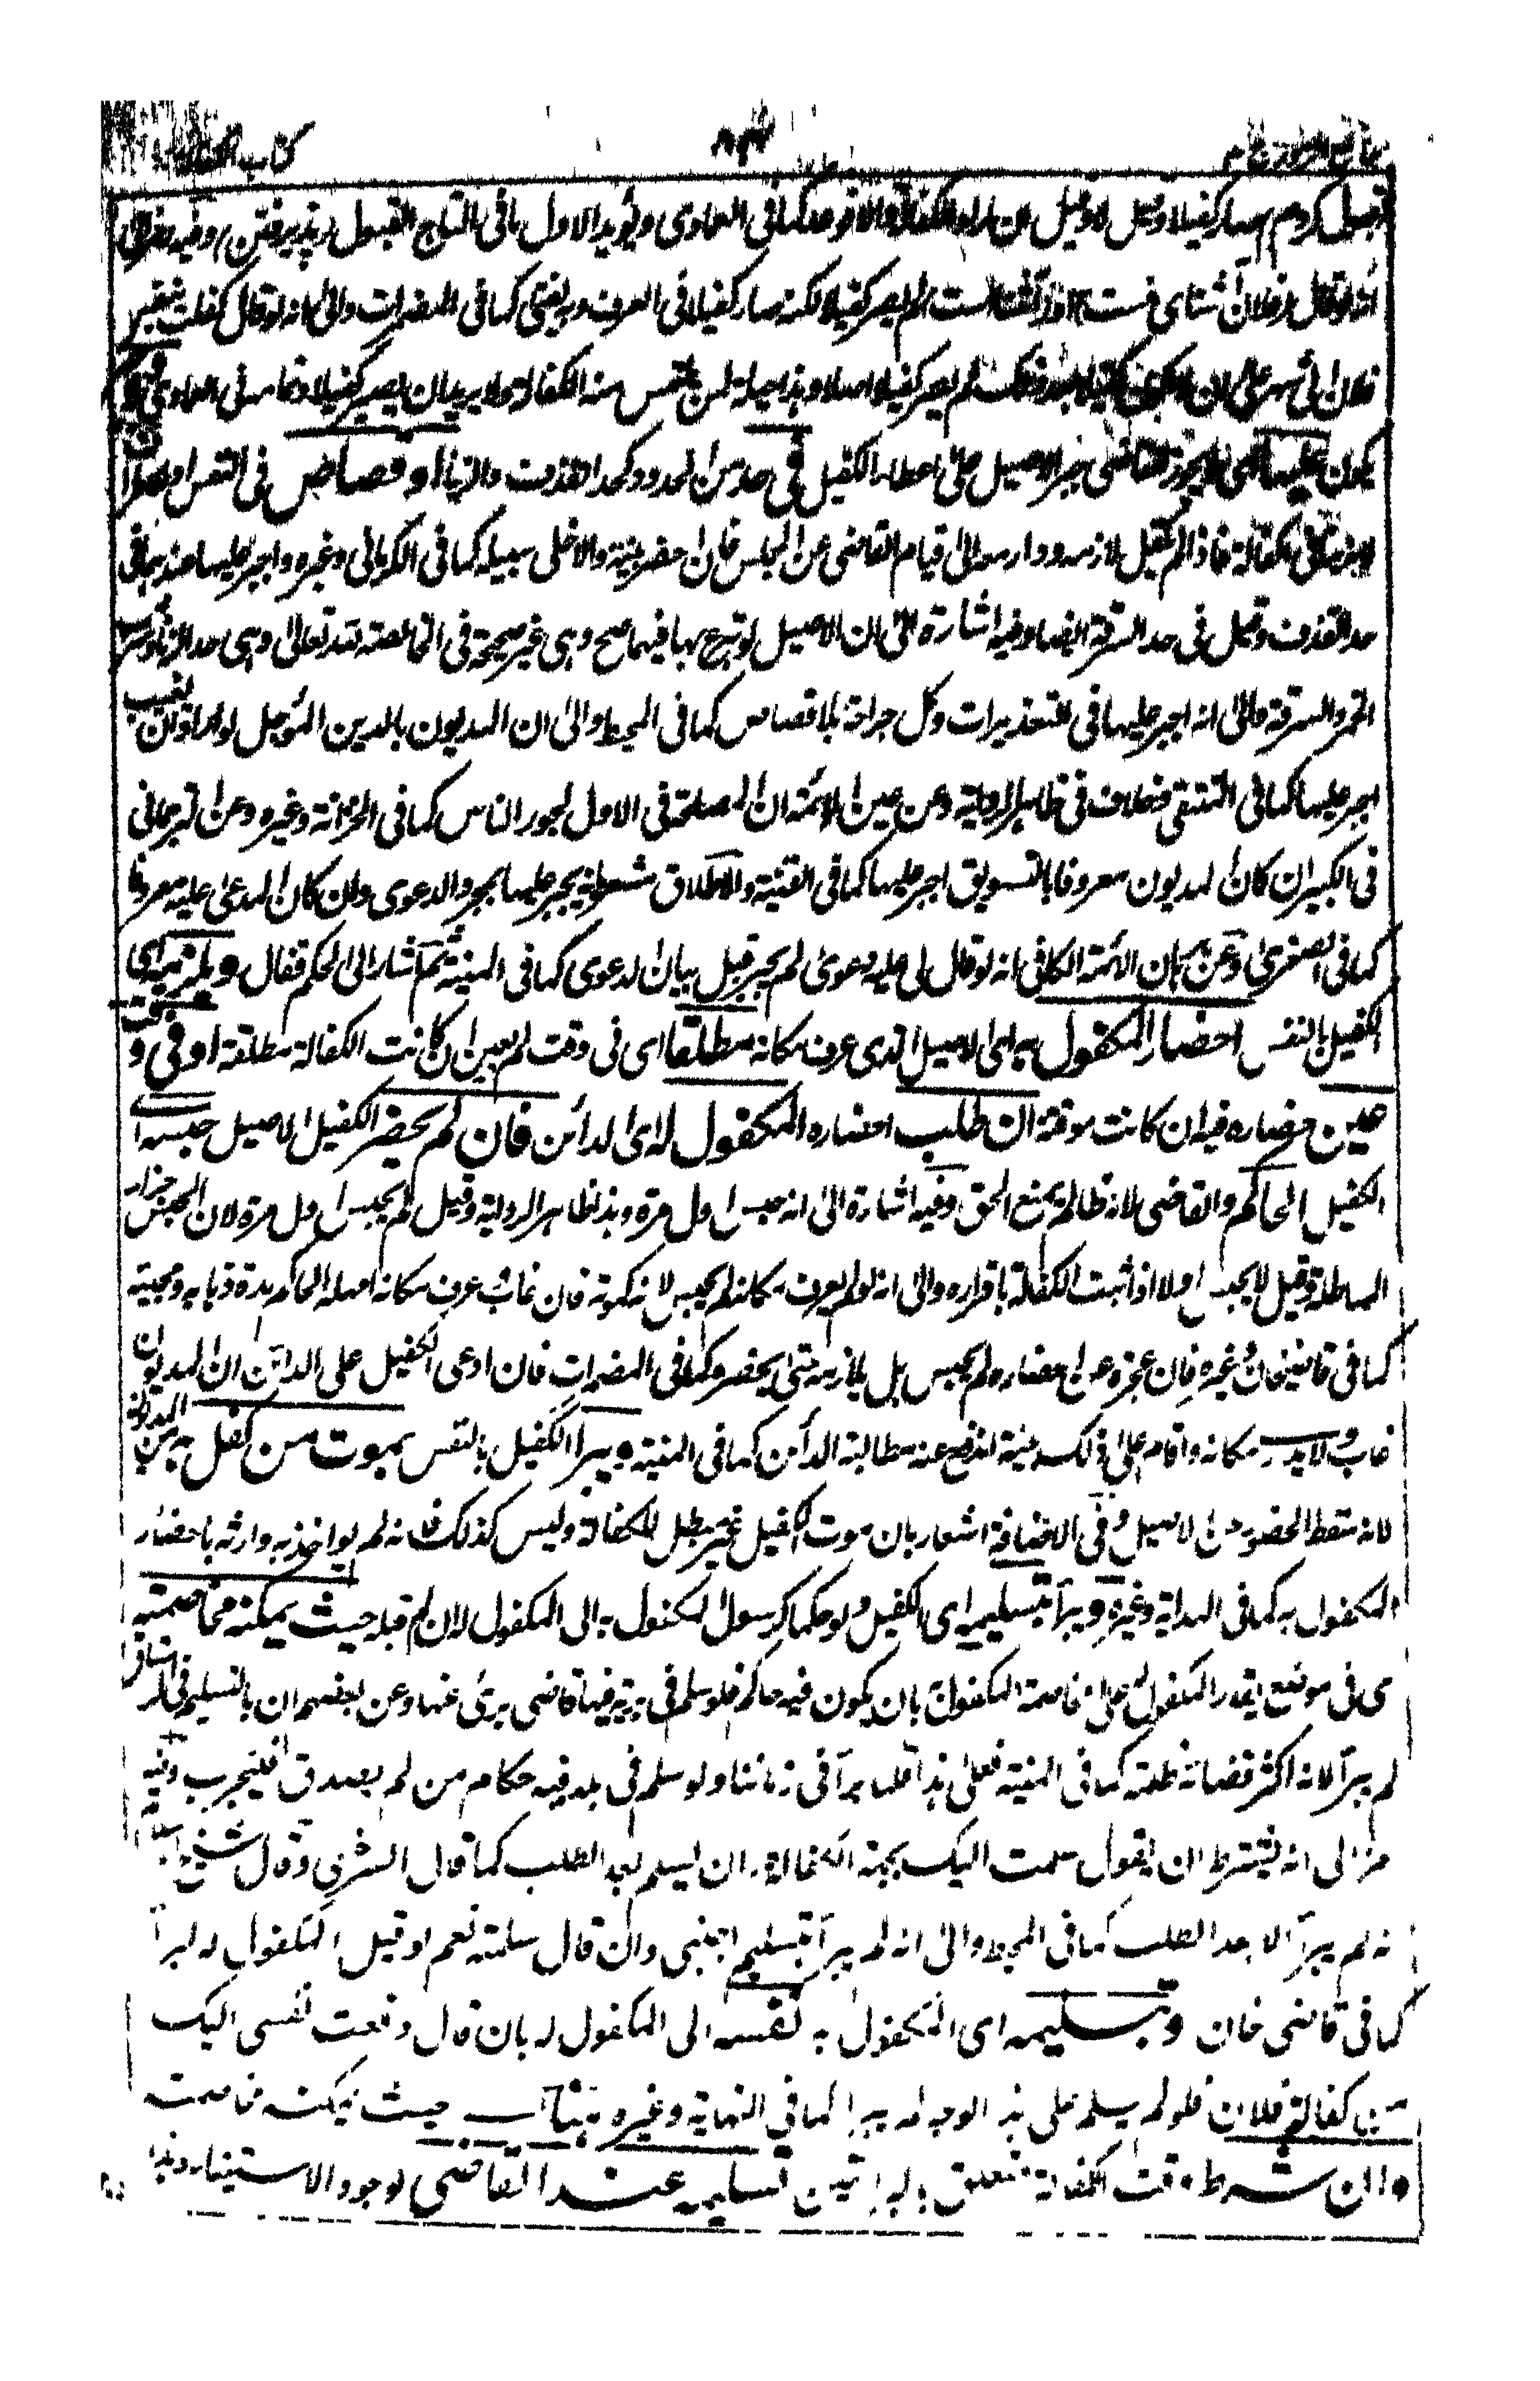 كتاب الكفالة
قبول كردم صار كفيلا وقيل لا وقيل ان اراد الكفالة والا فوعد كما في العمادي ويؤيد الاول ما في التاج القبول پذيرفتن وفيه
انه لو قال فلان آشناى منست لم يصر كفيلا لكنه صار كفيلا في العرف وبه يفتى كما في المضمرات والى انه لو قال كفلت بنفس
فلان الى شهر على ان لم يصر كفيلا اصلا وهذا حيلة لمن يلتمس منه الكفالة ولا يريد ان يصير كفيلا وتمامه في العمادي
يكون القاضي جبر الاصيل على اعطاء الكفيل في حد من الحدود كحد القذف والزنا او قصاص في النفس او
فاذا لم يكفل لازمه ودار معه الى قيام القاضي عن المجلس فان احضر بينة والا خلى سبيله كما في الكرماني وغيره واجبر عليها عندهما في
حد القذف وقيل في حد السرقة ايضا وفيه اشارة الى ان الاصيل لو تبرع بها فيهما صح وهي غير صحيحة في الخالصة لله تعالى وهي حد الزنا وشرب
الخمر والسرقة والى انه اجبر عليها في التعذيرات وكل جراحة بلا قصاص كما في المحيط والى ان المديون بالدين المؤجل لو اراد ان يغيب
اجبر عليها كما في المنتقى فخلاف في ظاهر الرواية وعن عين الائمة ان المصلحة في الاول لجور الناس كما في الخزانة وغيره وعن الترجماني
في الكبير ان كان المديون معروفا بالتسويف اجبر عليها كما في القنية والاطلاق مشعر بانه يجبر عليها بمجرد الدعوى وان كان المدعى عليه معروفا
كما في الصغرى وعن برهان الائمة الكافي انه لو قال لي عليه دعوى لم يجبر قبل بيان الدعوى كما في المنية ثم اشار الى الحكم فقال ويلزمه اى
الكفيل بالنفس احضار المكفول به اى الاصيل الذى عرف مكانه مطلقا اى في وقت لم يعين ان كانت الكفالة مطلقة او في وقت
عين احضاره فيه ان كانت موقتة ان طلب احضاره المكفول له اى الدائن فان لم يحضر الكفيل الاصيل حبسه اى
الكفيل الحاكم والقاضي لانه ظالم يمنع الحق وفيه اشارة الى انه حبس اول مرة وهذا ظاهر الرواية وقيل لم يحبس اول مرة لان الحبس جزاء
المماطلة وقيل لا يحبس اولا اذا ثبت الكفالة باقراره والى انه لو لم يعرف مكانه لم يحبس لانه كموته فان غاب وعرف مكانه امهله الحاكم مدة ذهابه ومجيئه
كما في قاضيخان وغيره فان عجزه عن احضاره لم يحبس بل يلازمه متى يحضره كما في المضمرات فان ادعى الكفيل على الدائن ان المديون
غاب ولا يدرى مكانه واقام على ذلك بينة اندفع عنه مطالبة الدائن كما في المنية ويبرأ الكفيل بالنفس بموت من كفل به
لانه سقط الحضور عن الاصيل وفي الاضافة اشعار بان موت الكفيل غير مبطل للكفالة وليس كذلك فانه لم يواخذ به وارثه باحضار
المكفول به كما في الهداية وغيره ويبرأ بتسليمه اى الكفيل ولو حكما كرسول المكفول به الى المكفول له ان لم يقبله حيث يمكنه مخاصمته
اى في موضع يقدر المكفول له على مخاصمة المكفول به بان يكون فيه حاكم فلو سلم في برية فيها قاضى برئ عنها وعن بعضهم ان بالتسليم في الرستاق
لم يبرأ لانه اكثر قضاته ظلمة كما في المنية فعلى هذا قلما يبرأ في زماننا ولو سلم في بلد فيه حكام من لم يصدق فليجرب وفيه
رمز الى انه يشترط ان يقول سلمت اليك بجهة الكفالة وان يسلم بعد الطلب كما قال السرخسي وقال شيخ
انه لم يبرأ الا بعد الطلب كما في المحيط والى انه لم يبرأ بتسليم اجنبى وان قال سلمته نعم لو قبل المكفول له ابرأ
كما في قاضى خان وبتسليمه اى المكفول به نفسه الى المكفول له بان قال دفعت نفسى اليك
من كفالة فلان فلو لم يسلم على هذا الوجه لم يبرأ كما في النهاية وغيره حيث يمكنه مخاصمته
وان شرط وقت الكفالة متعلق تسليمه عند القاضى لوجود الاستيفاء وهذا